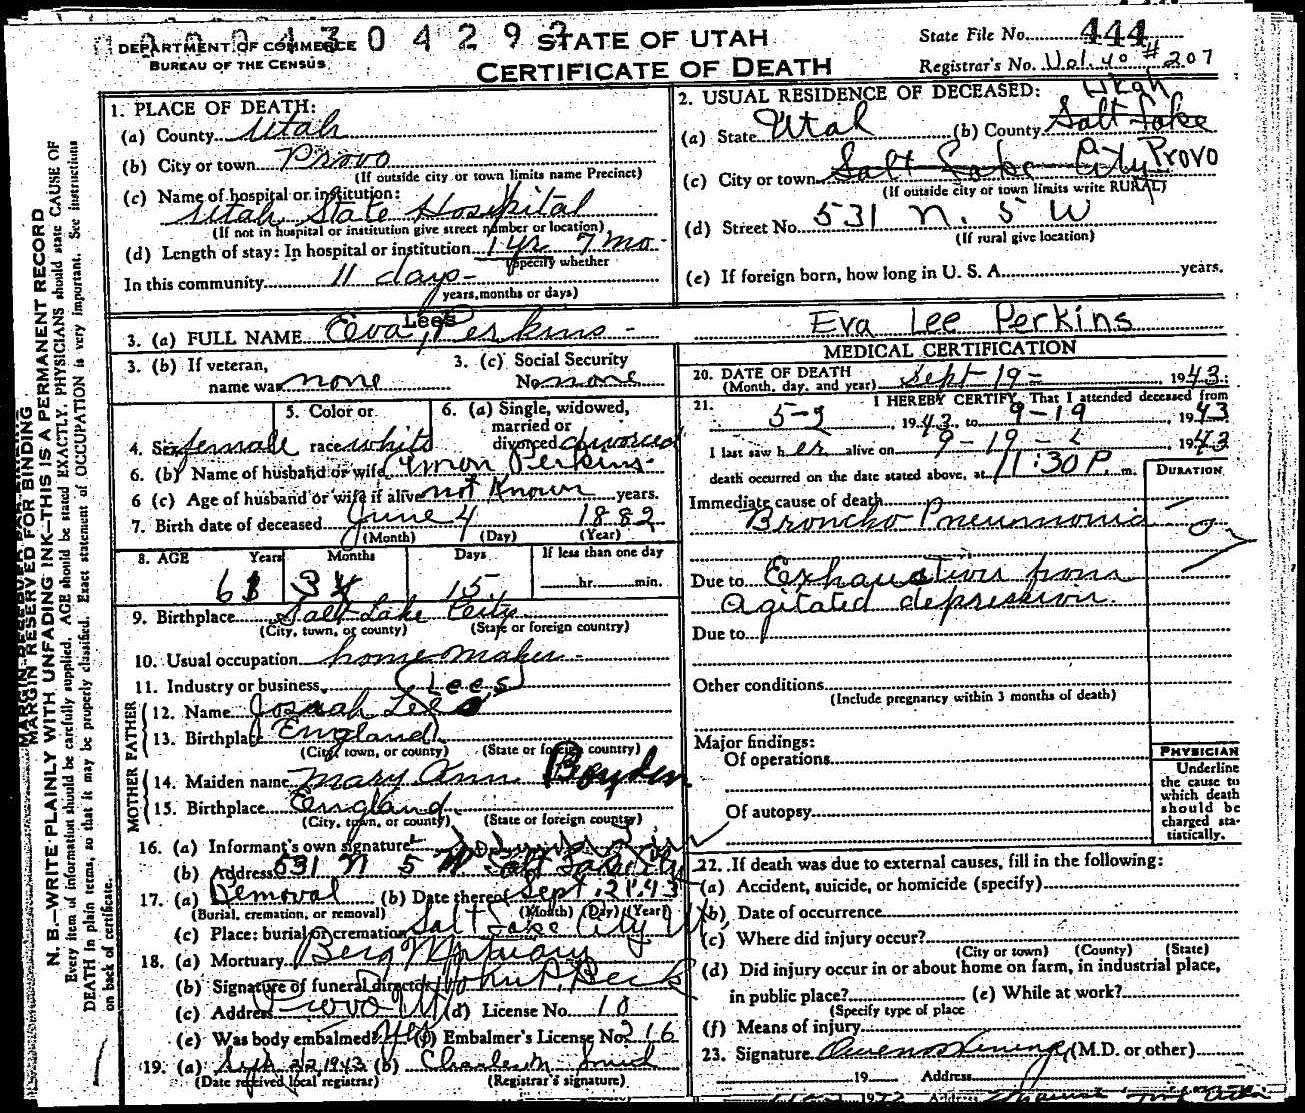 0 0 0 4 3 0 4 2 9
DEPARTMENT OF COMMERCE
BUREAU OF THE CENSUS
STATE OF UTAH
CERTIFICATE OF DEATH
State File No. 444
Registrar's No. Vol 40 # 207
MARGIN RESERVED FOR BINDING
N. B.—WRITE PLAINLY WITH UNFADING INK—THIS IS A PERMANENT RECORD
Every item of information should be carefully supplied. AGE should be stated EXACTLY. PHYSICIANS should state CAUSE OF
DEATH in plain terms, so that it may be properly classified. Exact statement of OCCUPATION is very important. See instructions
on back of certificate.
1. PLACE OF DEATH:
(a) County Utah
(b) City or town Provo
(If outside city or town limits name Precinct)
(c) Name of hospital or institution:
Utah State Hospital
(If not in hospital or institution give street number or location)
(d) Length of stay: In hospital or institution 1 yr 7 mo.
(Specify whether
In this community 11 days
years, months or days)
2. USUAL RESIDENCE OF DECEASED:
Utah
(a) State Utah (b) County Salt Lake
(c) City or town Salt Lake City Provo
(If outside city or town limits write RURAL)
(d) Street No. 531 N. 5 W
(If rural give location)
(e) If foreign born, how long in U. S. A. years.
3. (a) FULL NAME Eva Lees Perkins
Eva Lee Perkins
3. (b) If veteran,
name war none
3. (c) Social Security
No. none
4. Sex female
5. Color or
race white
6. (a) Single, widowed,
married or
divorced divorced
6. (b) Name of husband or wife Amon Perkins
6 (c) Age of husband or wife if alive not Known years.
7. Birth date of deceased June 4 1882
(Month) (Day) (Year)
8. AGE Years Months Days If less than one day
61 3 15 hr. min.
9. Birthplace Salt Lake City
(City, town, or county) (State or foreign country)
10. Usual occupation home maker
11. Industry or business
(Lees)
FATHER
12. Name Josiah Lees
13. Birthplace England
(City, town, or county) (State or foreign country)
MOTHER
14. Maiden name Mary Ann Boyden
15. Birthplace England
(City, town, or county) (State or foreign country)
16. (a) Informant's own signature
(b) Address 531 N 5 W Salt Lake City
17. (a) Removal (b) Date thereof Sept. 21, 43
(Burial, cremation, or removal) (Month) (Day) (Year)
(c) Place: burial or cremation Salt Lake City Ut
18. (a) Mortuary Berg Mortuary
(b) Signature of funeral director John P. Beck
(c) Address Provo Ut (d) License No. 10
(e) Was body embalmed? yes (f) Embalmer's License No. 216
19. (a) Sept 22 1943 (b)
(Date received local registrar) (Registrar's signature)
MEDICAL CERTIFICATION
20. DATE OF DEATH
(Month, day, and year) Sept 19 - 1943
21. I HEREBY CERTIFY, That I attended deceased from
5-2, 1943, to 9-19, 1943
I last saw h er alive on 9-19-, 1943
death occurred on the date stated above, at 11:30 P m.
DURATION
Immediate cause of death
Broncho Pneumonia
Due to Exhaustion from
Agitated depression.
Due to
Other conditions
(Include pregnancy within 3 months of death)
Major findings:
Of operations
Of autopsy
PHYSICIAN
Underline
the cause to
which death
should be
charged sta-
tistically.
22. If death was due to external causes, fill in the following:
(a) Accident, suicide, or homicide (specify)
(b) Date of occurrence
(c) Where did injury occur?
(City or town) (County) (State)
(d) Did injury occur in or about home on farm, in industrial place,
in public place? (e) While at work?
(Specify type of place
(f) Means of injury
23. Signature (M.D. or other)
19 Address